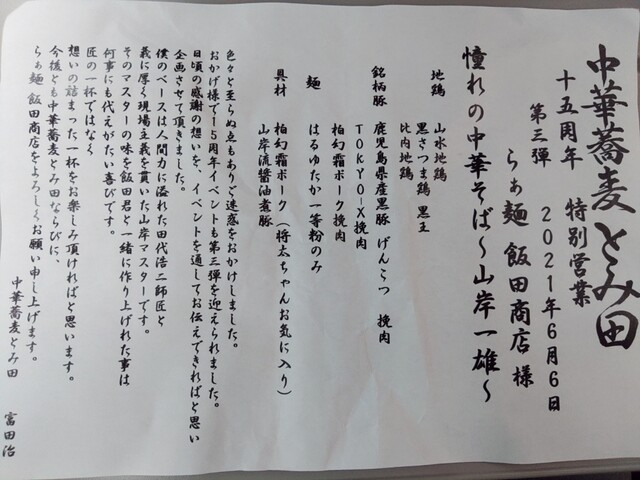 中華蕎麦 とみ田
十五周年 特別営業
第三弾 2021年6月6日
らぁ麺 飯田商店 様
憧れの中華そば～山岸一雄～
地鶏 山水地鶏
黒さつま鶏 黒王
比内地鶏
銘柄豚 鹿児島県産黒豚 げんこつ 挽肉
TOKYO-X挽肉
柏幻霜ポーク挽肉
麺 はるゆたか一等粉のみ
具材 柏幻霜ポーク(将太ちゃんお気に入り)
山岸流醤油煮豚
色々と至らぬ点もありご迷惑をおかけしました。
おかげ様で15周年イベントも第三弾を迎えられました。
日頃の感謝の想いを、イベントを通してお伝えできればと思い
企画させて頂きました。
僕のベースは人間力に溢れた田代浩二師匠と
義に厚く現場主義を貫いた山岸マスターです。
そのマスターの味を飯田君と一緒に作り上げれた事は
何事にも代えがたい喜びです。
匠の一杯ではなく
想いの詰まった一杯をお楽しみ頂ければと思います。
今後とも中華蕎麦とみ田ならびに、
らぁ麺 飯田商店をよろしくお願い申し上げます。
中華蕎麦とみ田 富田治